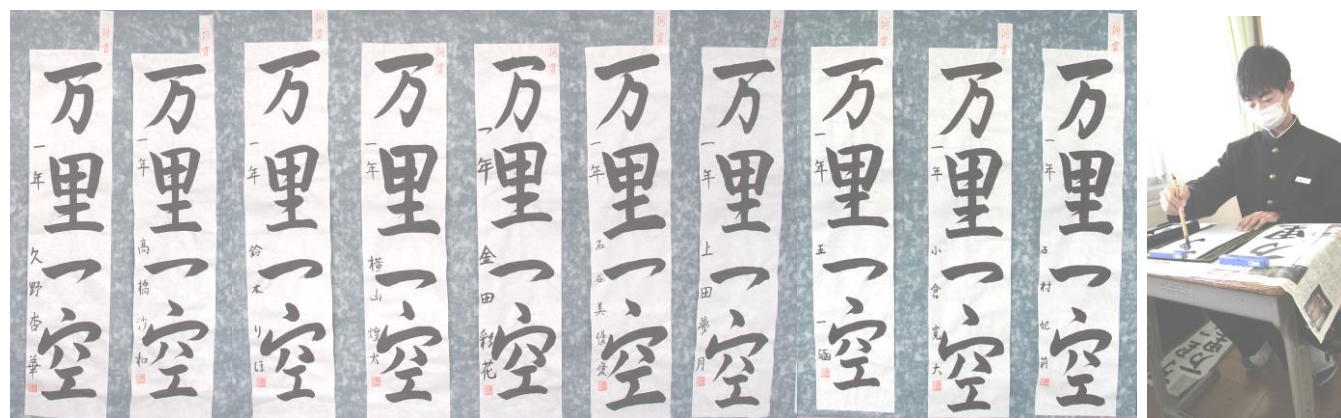 万里一空
一年 久野杏華
万里一空
一年 高橋沙和
万里一空
一年 鈴木りほ
万里一空
一年 横山煌大
万里一空
一年 金田彩花
万里一空
一年 石谷美優愛
万里一空
一年 上田夢月
万里一空
一年
万里一空
一年 小倉寛大
万里一空
一年